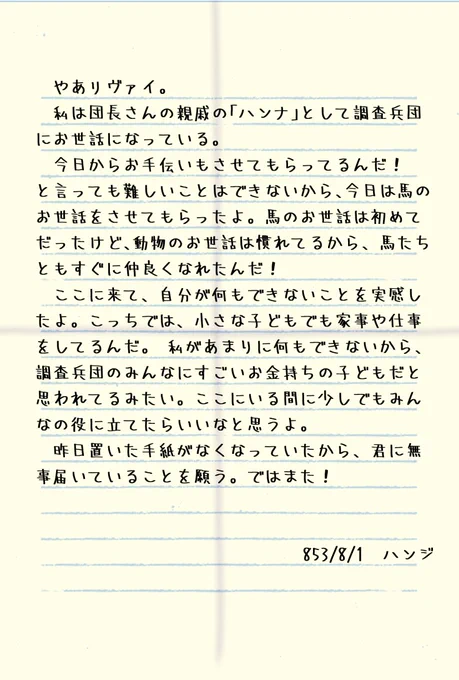 やあリヴァイ。
私は団長さんの親戚の「ハンナ」として調査兵団
にお世話になっている。
今日からお手伝いもさせてもらってるんだ！
と言っても難しいことはできないから、今日は馬の
お世話をさせてもらったよ。馬のお世話は初めて
だったけど、動物のお世話は慣れてるから、馬たち
ともすぐに仲良くなれたんだ！
ここに来て、自分が何もできないことを実感し
たよ。こっちでは、小さな子どもでも家事や仕事
をしてるんだ。 私があまりに何もできないから、
調査兵団のみんなにすごいお金持ちの子どもだと
思われてるみたい。ここにいる間に少しでもみん
なの役に立てたらいいなと思うよ。
昨日置いた手紙がなくなっていたから、君に無
事届いていることを願う。ではまた！
853/8/1 ハンジ